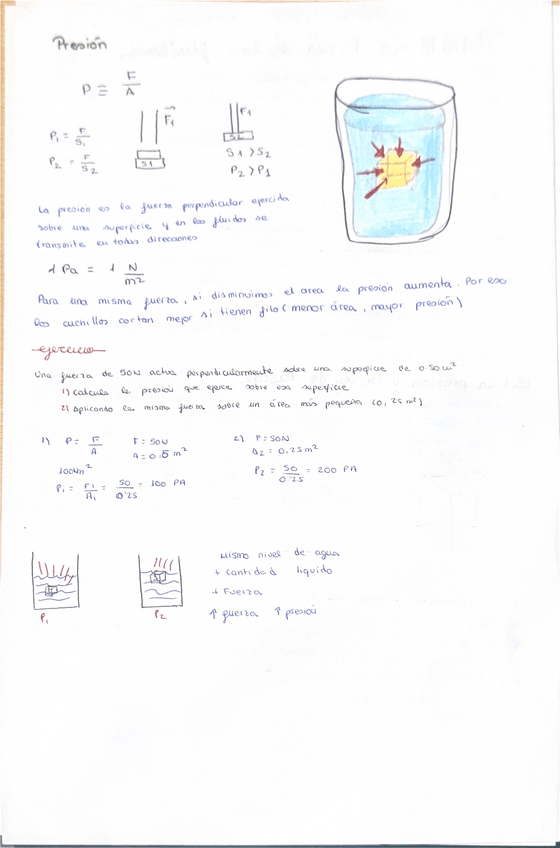 Presión
P = F/A
F1
F1
P1 = F/S1
P2 = F/S2
S1
S2
S1 > S2
P2 > P1
La presión es la fuerza perpendicular ejercida
sobre una superficie y en los fluidos se
transmite en todas direcciones
1 Pa = 1 N/m²
Para una misma fuerza, si disminuimos el area la presión aumenta. Por eso
los cuchillos cortan mejor si tienen filo (menor área, mayor presión)
ejercicio
Una fuerza de 50N actua perpendicularmente sobre una superficie de 0.50 m²
1) Calcula la presión que ejerce sobre esa superficie
2) Aplicando la misma fuerza sobre un área más pequeña (0,25 m²)
1) P = F/A F = 50N
A = 0.5 m²
100N/m²
P1 = F1/A1 = 50/0'25 = 100 PA
2) F = 50N
A2 = 0,25 m²
P2 = 50/0'25 = 200 PA
P1
P2
Mismo nivel de agua
+ cantidad liquido
+ Fuerza
↑ fuerza ↑ presión